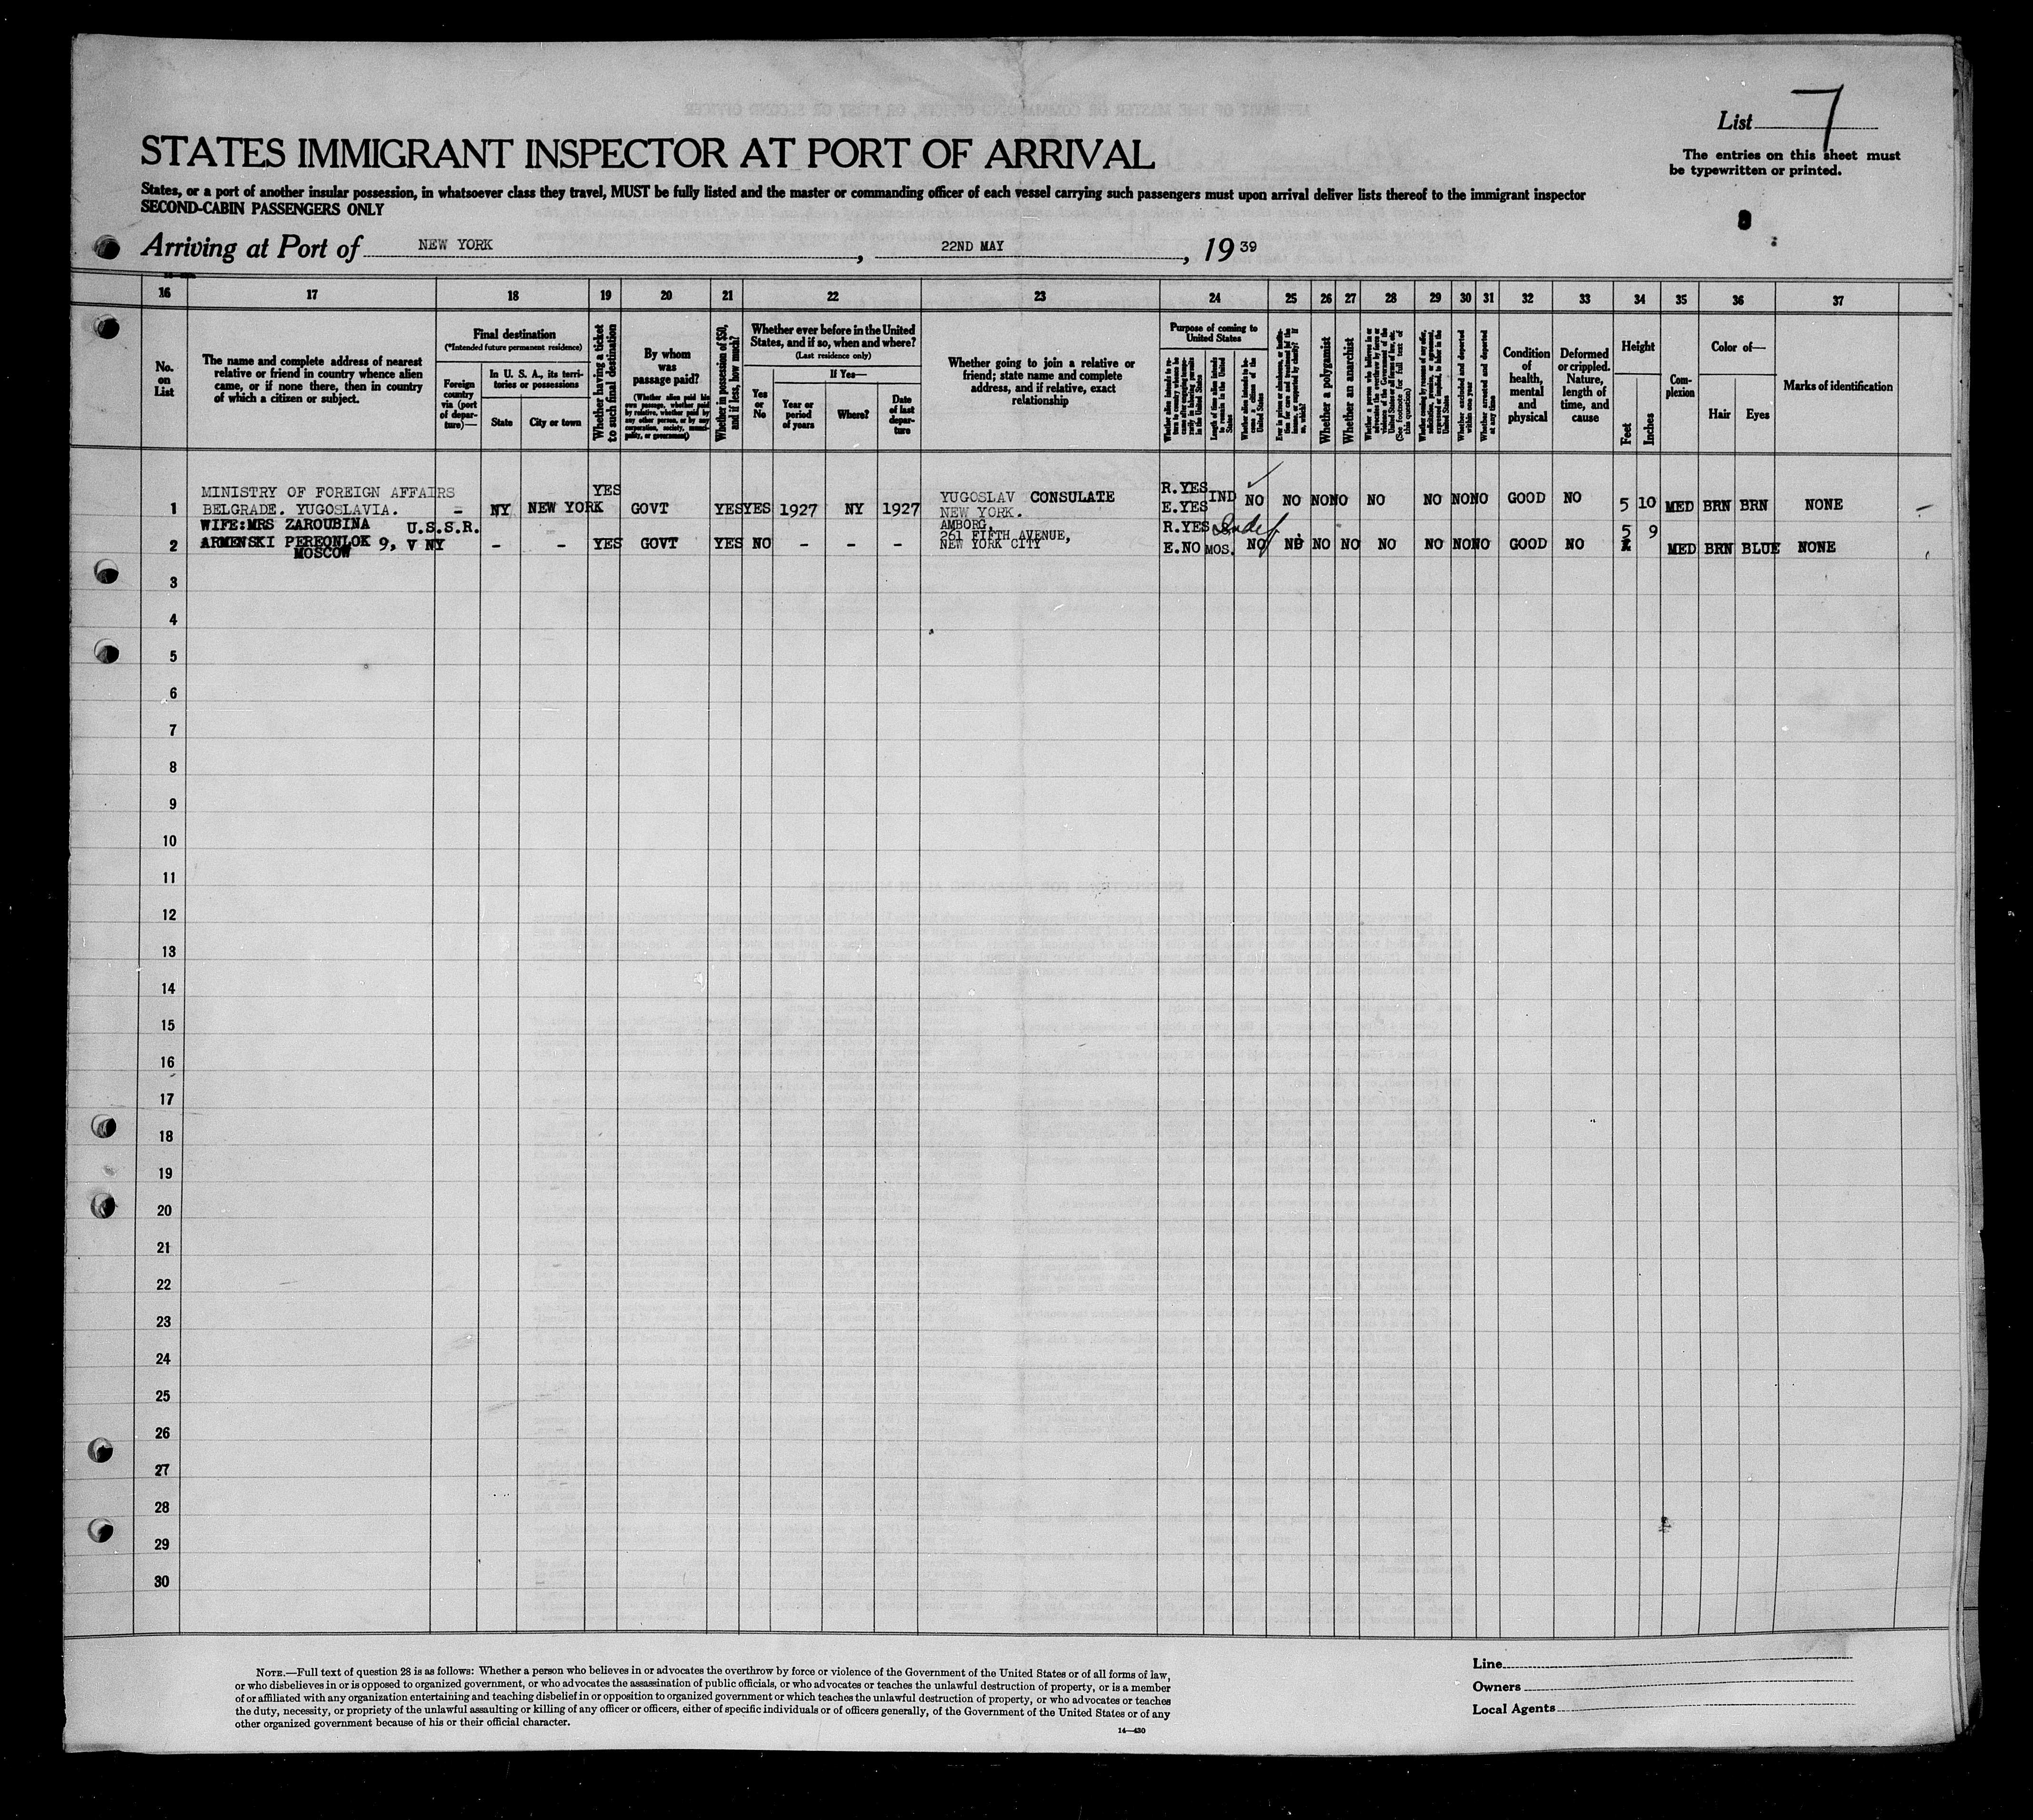 List 7
The entries on this sheet must
be typewritten or printed.
STATES IMMIGRANT INSPECTOR AT PORT OF ARRIVAL
States, or a port of another insular possession, in whatsoever class they travel, MUST be fully listed and the master or commanding officer of each vessel carrying such passengers must upon arrival deliver lists thereof to the immigrant inspector
SECOND-CABIN PASSENGERS ONLY
Arriving at Port of NEW YORK, 22ND MAY, 19 39
16 17 18 19 20 21 22 23 24 25 26 27 28 29 30 31 32 33 34 35 36 37
No.
on
List
The name and complete address of nearest
relative or friend in country whence alien
came, or if none there, then in country
of which a citizen or subject.
Final destination
(*Intended future permanent residence)
Foreign
country
via (port
of depar-
ture)—
In U. S. A., its terri-
tories or possessions
State
City or town
Whether having a ticket
to such final destination
By whom
was
passage paid?
(Whether alien paid his
own passage, whether paid
by relative, whether paid by
any other person, or by any
corporation, society, munici-
pality, or government)
Whether in possession of $50,
and if less, how much?
Whether ever before in the United
States, and if so, when and where?
(Last residence only)
Yes
or
No
If Yes—
Year or
period
of years
Where?
Date
of last
depar-
ture
Whether going to join a relative or
friend; state name and complete
address, and if relative, exact
relationship
Purpose of coming to
United States
Length of time alien intends
to remain in the United
States
Whether alien intends to be-
come a citizen of the
United States
Whether a polygamist
Whether an anarchist
Whether excluded and deported
within one year
Whether arrested and deported
at any time
Condition
of
health,
mental
and
physical
Deformed
or crippled.
Nature,
length of
time, and
cause
Height
Feet
Inches
Com-
plexion
Color of—
Hair
Eyes
Marks of identification
1 MINISTRY OF FOREIGN AFFAIRS
BELGRADE. YUGOSLAVIA. – NY NEW YORK YES GOVT YES YES 1927 NY 1927 YUGOSLAV CONSULATE
NEW YORK. R.YES
E.YES IND NO NO NO NO NO NO NO NO GOOD NO 5 10 MED BRN BRN NONE
2 WIFE:MRS ZAROUBINA U.S.S.R.
ARMENSKI PEREONLOK 9, V NY
MOSCOW – – YES GOVT YES NO – – – AMBORG,
261 FIFTH AVENUE,
NEW YORK CITY R.YES
E.NO MOS. Indef NO NO NO NO NO NO NO NO GOOD NO 5 9 MED BRN BLUE NONE
3
4
5
6
7
8
9
10
11
12
13
14
15
16
17
18
19
20
21
22
23
24
25
26
27
28
29
30
NOTE.—Full text of question 28 is as follows: Whether a person who believes in or advocates the overthrow by force or violence of the Government of the United States or of all forms of law,
or who disbelieves in or is opposed to organized government, or who advocates the assassination of public officials, or who advocates or teaches the unlawful destruction of property, or is a member
of or affiliated with any organization entertaining and teaching disbelief in or opposition to organized government or which teaches the unlawful destruction of property, or who advocates or teaches
the duty, necessity, or propriety of the unlawful assaulting or killing of any officer or officers, either of specific individuals or of officers generally, of the Government of the United States or of any
other organized government because of his or their official character.
14—430
Line
Owners
Local Agents